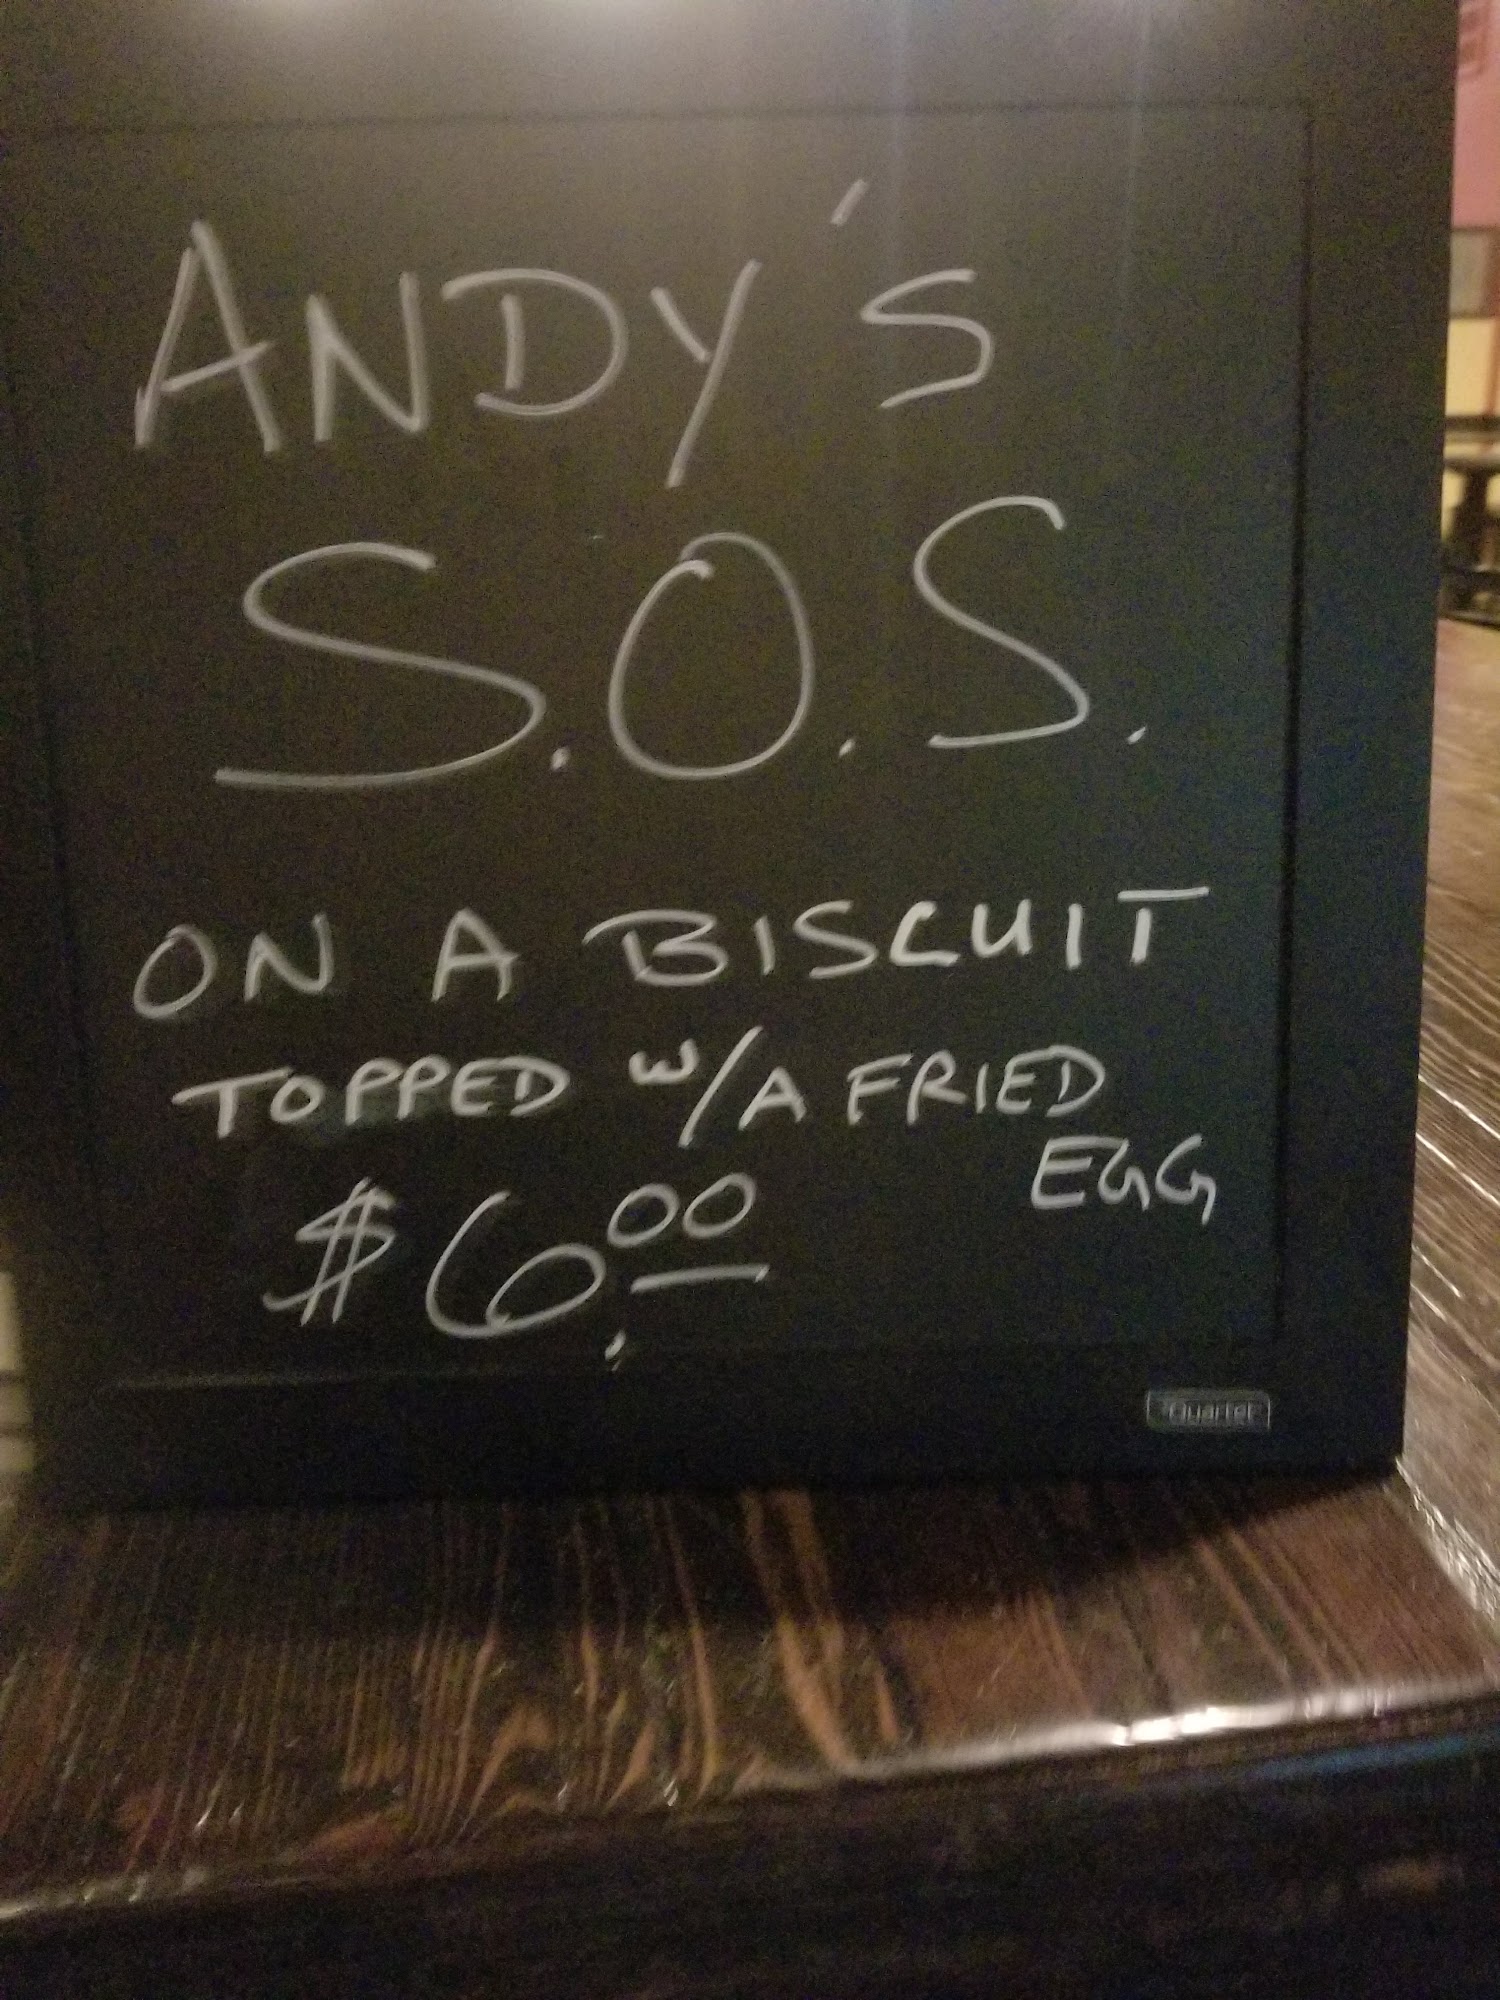 ANDY'S
S.O.S.
ON A BISCUIT
TOPPED W/A FRIED
EGG
$6.00
Quartet